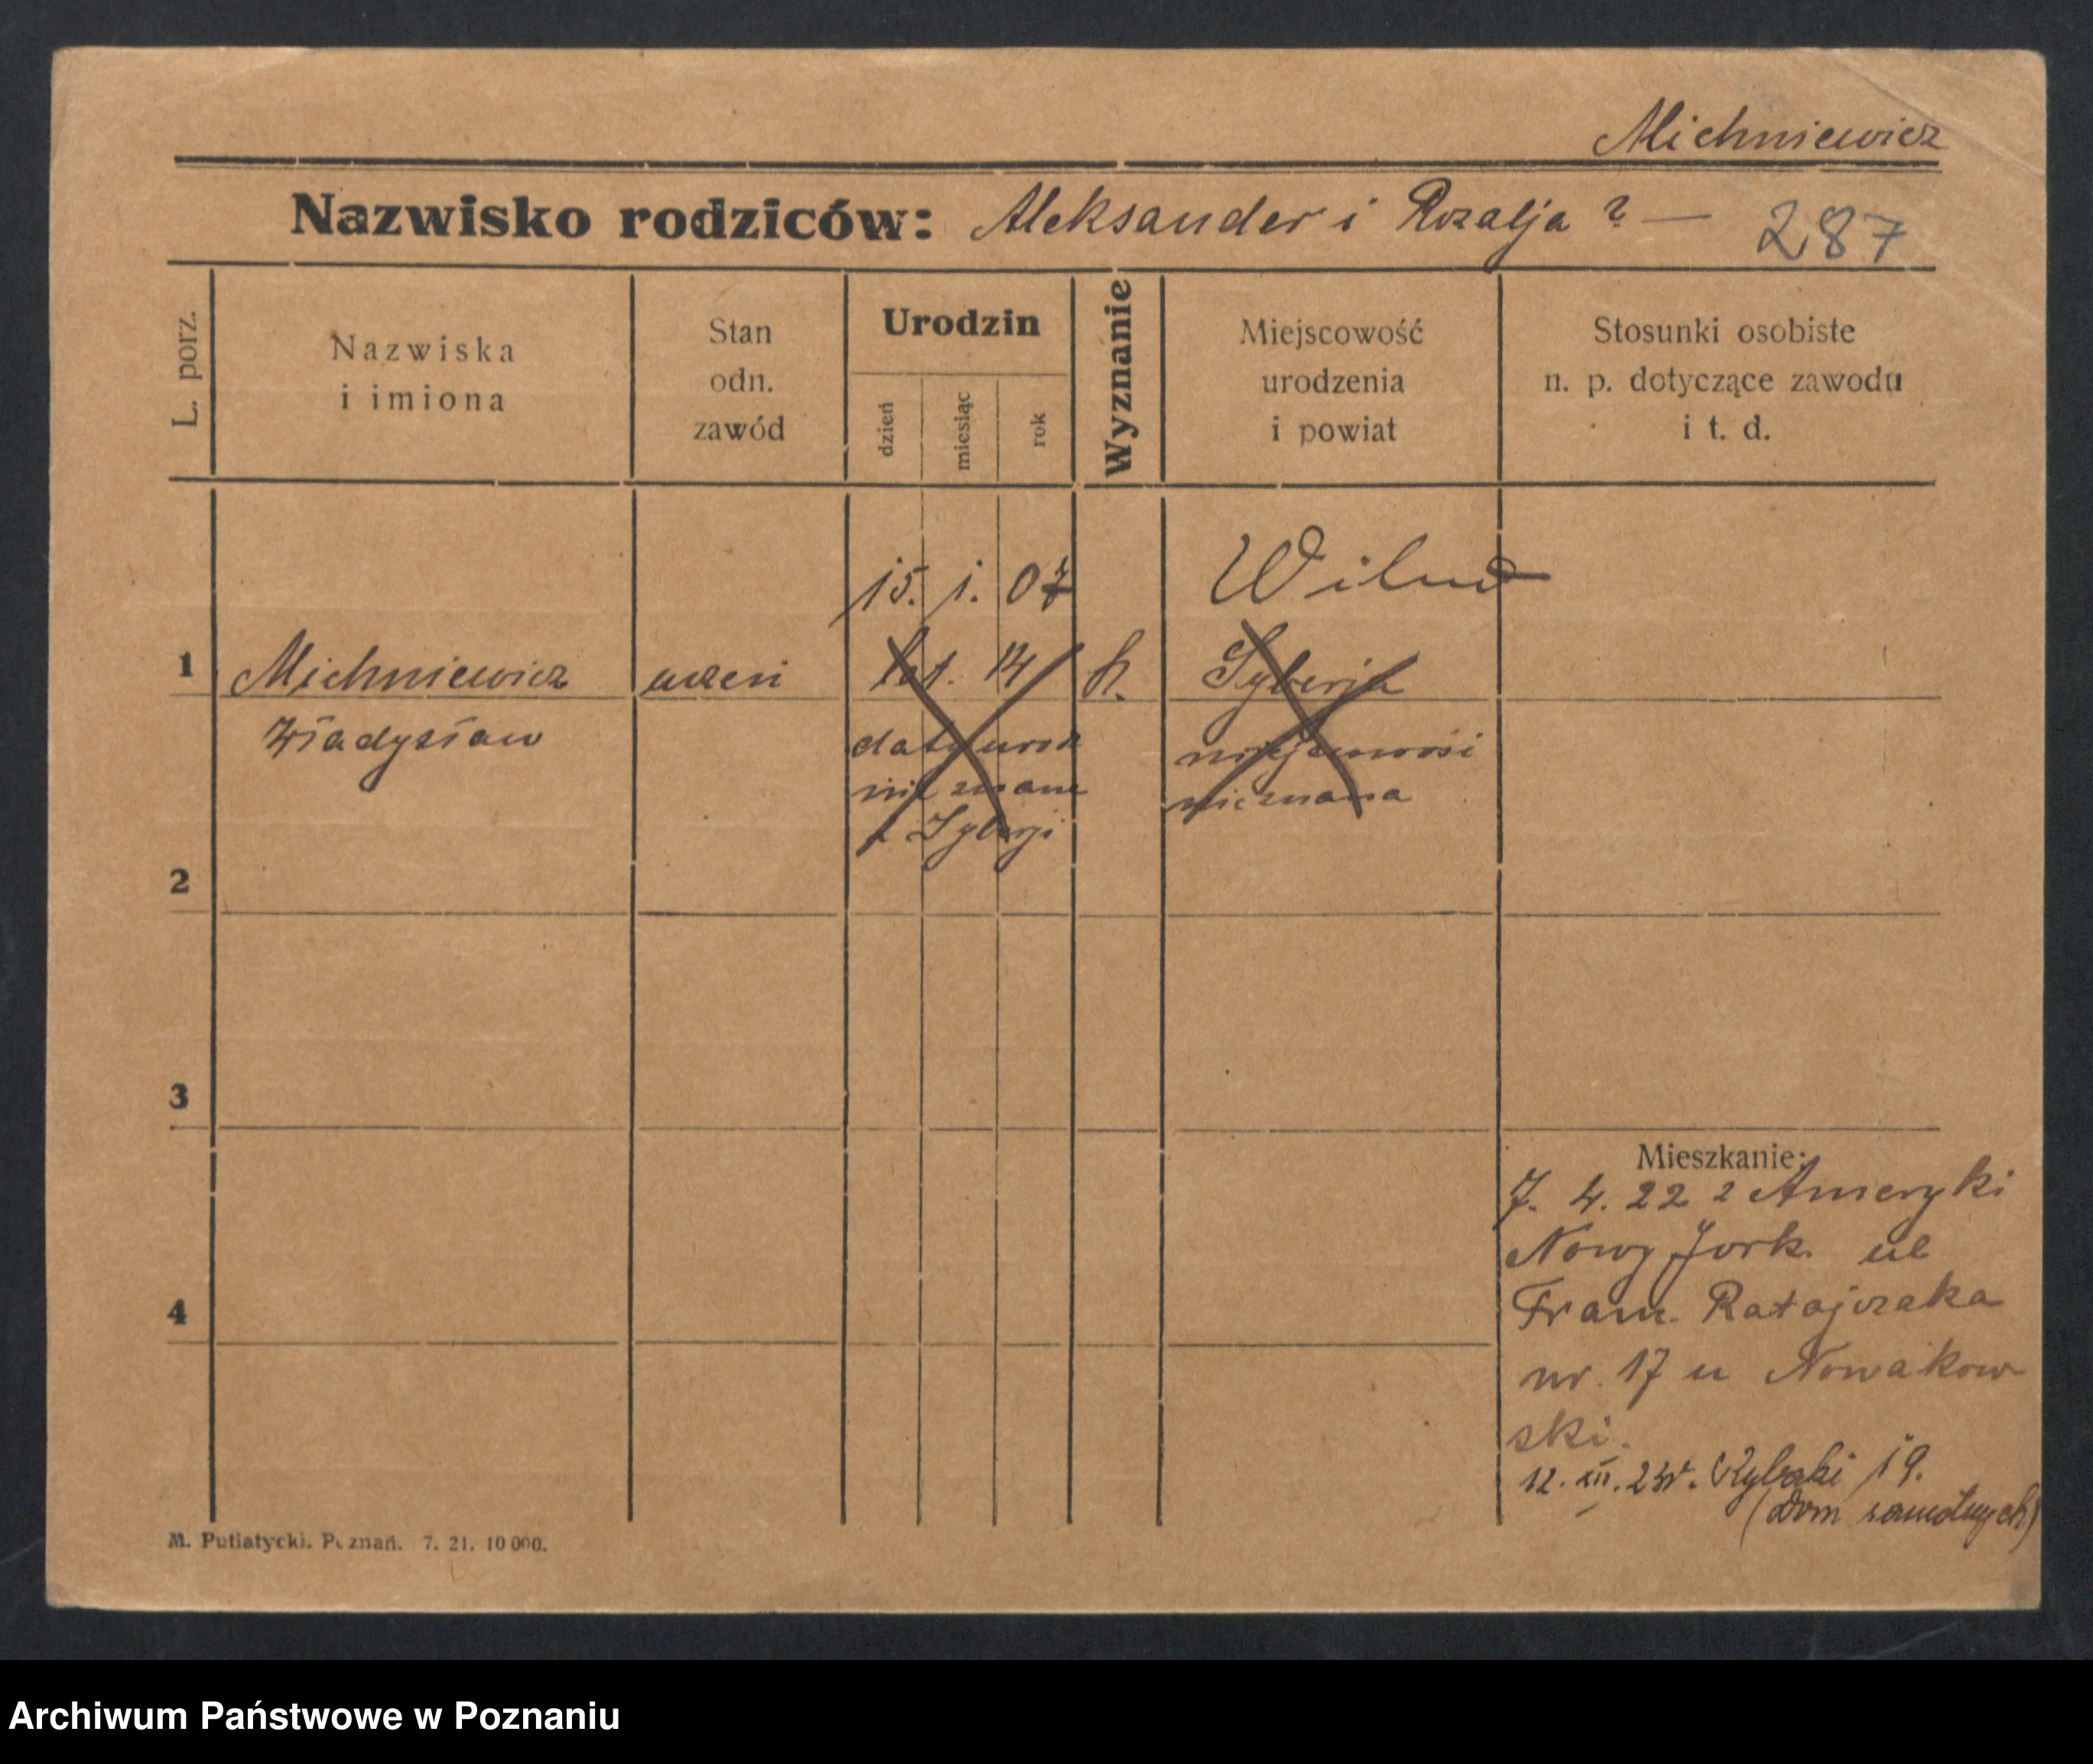 Michniewicz
Nazwisko rodziców: Aleksander i Rozalja ? — 287
L. porz.
Nazwiska
i imiona
Stan
odn.
zawód
Urodzin
dzień
miesiąc
rok
Wyznanie
Miejscowość
urodzenia
i powiat
Stosunki osobiste
n. p. dotyczące zawodu
i t. d.
15. 1. 07
Wilno
1 Michniewicz uczeń lat. 14 k. Syberja
Władysław
daty urodz
nie znane
z Syberji
miejscowość
nieznana
2
3
4
Mieszkanie:
7. 4. 22 z Ameryki
Nowy Jork. ul
Franc. Ratajczaka
nr. 17 u Nowakow
ski.
12. XII. 23r. Rybaki 19.
(Dom samotnych)
M. Putiatycki. Poznań. 7. 21. 10 000.
Archiwum Państwowe w Poznaniu